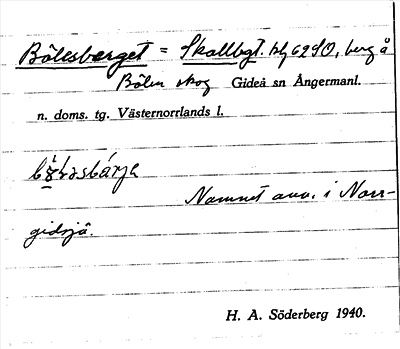 Bölesberget = Skallbgt. blg 62SO, berg å
Bölen skog Gideå sn Ångermanl.
n. doms. tg. Västernorrlands l.
Namnet anv. i Norr-
gidsjå.
H. A. Söderberg 1940.